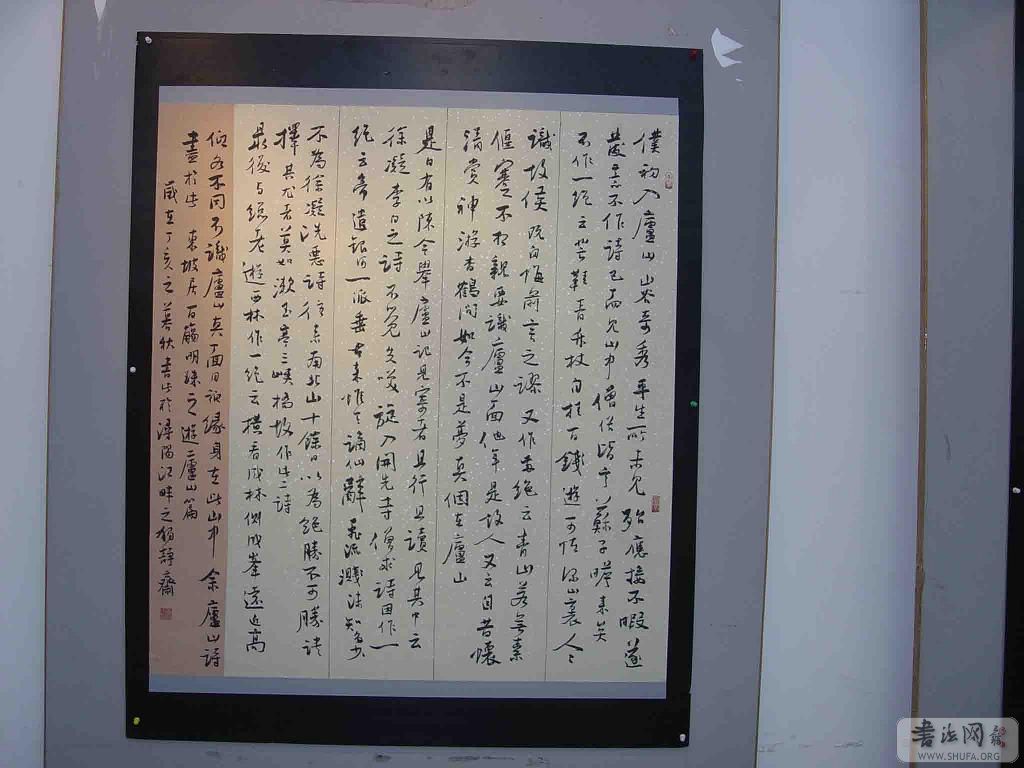 僕初入廬山山谷奇秀平生所未見殆應接不暇遂
發意不作詩已而見山中僧俗皆云蘇子瞻來矣
不作一絕云芒鞋青竹杖自掛百錢遊可怪深山裏人人
識故侯既自悔前言之謬又作兩絕云青山若無素
偃蹇不相親要識廬山面他年是故人又云自昔懷
清賞神游杳鶴間如今不是夢真個在廬山
是日有以陳令舉廬山記見寄者且行且讀見其中云
徐凝李白之詩不覺失笑旋入開先寺僧求詩因作一
絕云帝遣銀河一派垂古來惟有謫仙辭飛流濺沫知多少
不為徐凝洗惡詩往來南北山十餘日以為絕勝不可勝談
擇其尤者莫如漱玉亭三峽橋故作此二詩
最後與總老遊西林作一絕云橫看成林側成峯遠近高
低各不同不識廬山真面目祇緣身在此山中 余廬山詩
盡於此 東坡居 明珠之遊廬山篇
歲在丁亥之暮秋書此於潯陽江畔之 靜齋
書法网
WWW.SHUFA.ORG